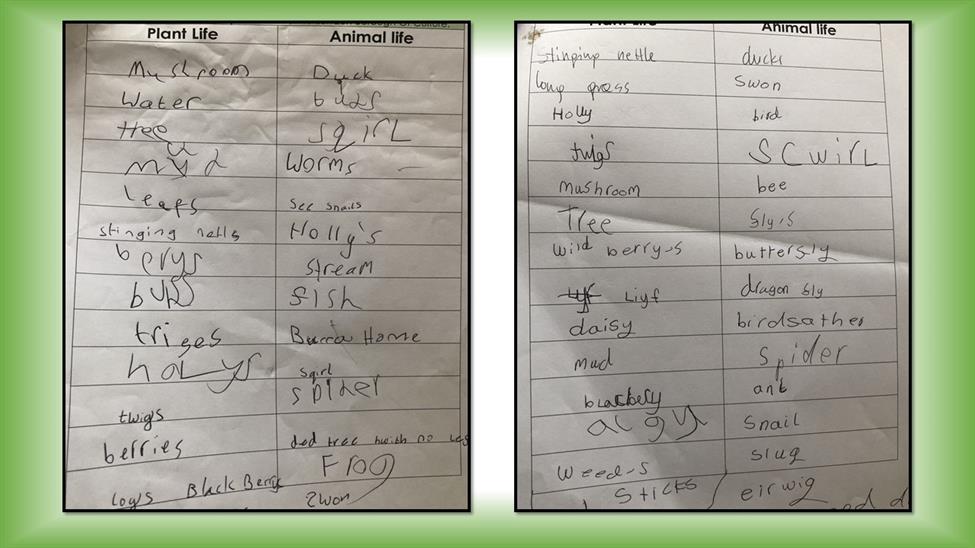 Plant Life Animal life
Mushroom Duck
Water buds
tree sqirL
mud Worms
leafs see snails
stinging netls Holly's
berys stream
buds fish
triges Burra Home
holys sqirl
spider
twigs
berries ded tree with no
Frog
logs Black Berry swon
Plant Life Animal life
Stinging nettle ducks
long grass Swon
Holly bird
twigs SCwirL
mushroom bee
Tree flys
wild berry-s butterfly
Liyf dragon fly
daisy birdsather
mud Spider
blackbery ant
algy Snail
Weed-s slug
Sticks eirwig